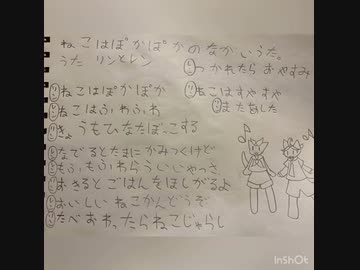 ねこはぽかぽかのなかいうた。
うた リンとレン
リねこはぽかぽか
レねこはふわふわ
リきょうもひなたぼっこする
レなでるとたまにかみつくけど
リもふもふわらういいやっさ
リおきるとごはんをほしがるよ
レおいしいねこかんどうぞ
リたべおわったらねこじゃらし
レつかれたらおやすみ
リねこはすやすや
レまたあした
InShOt